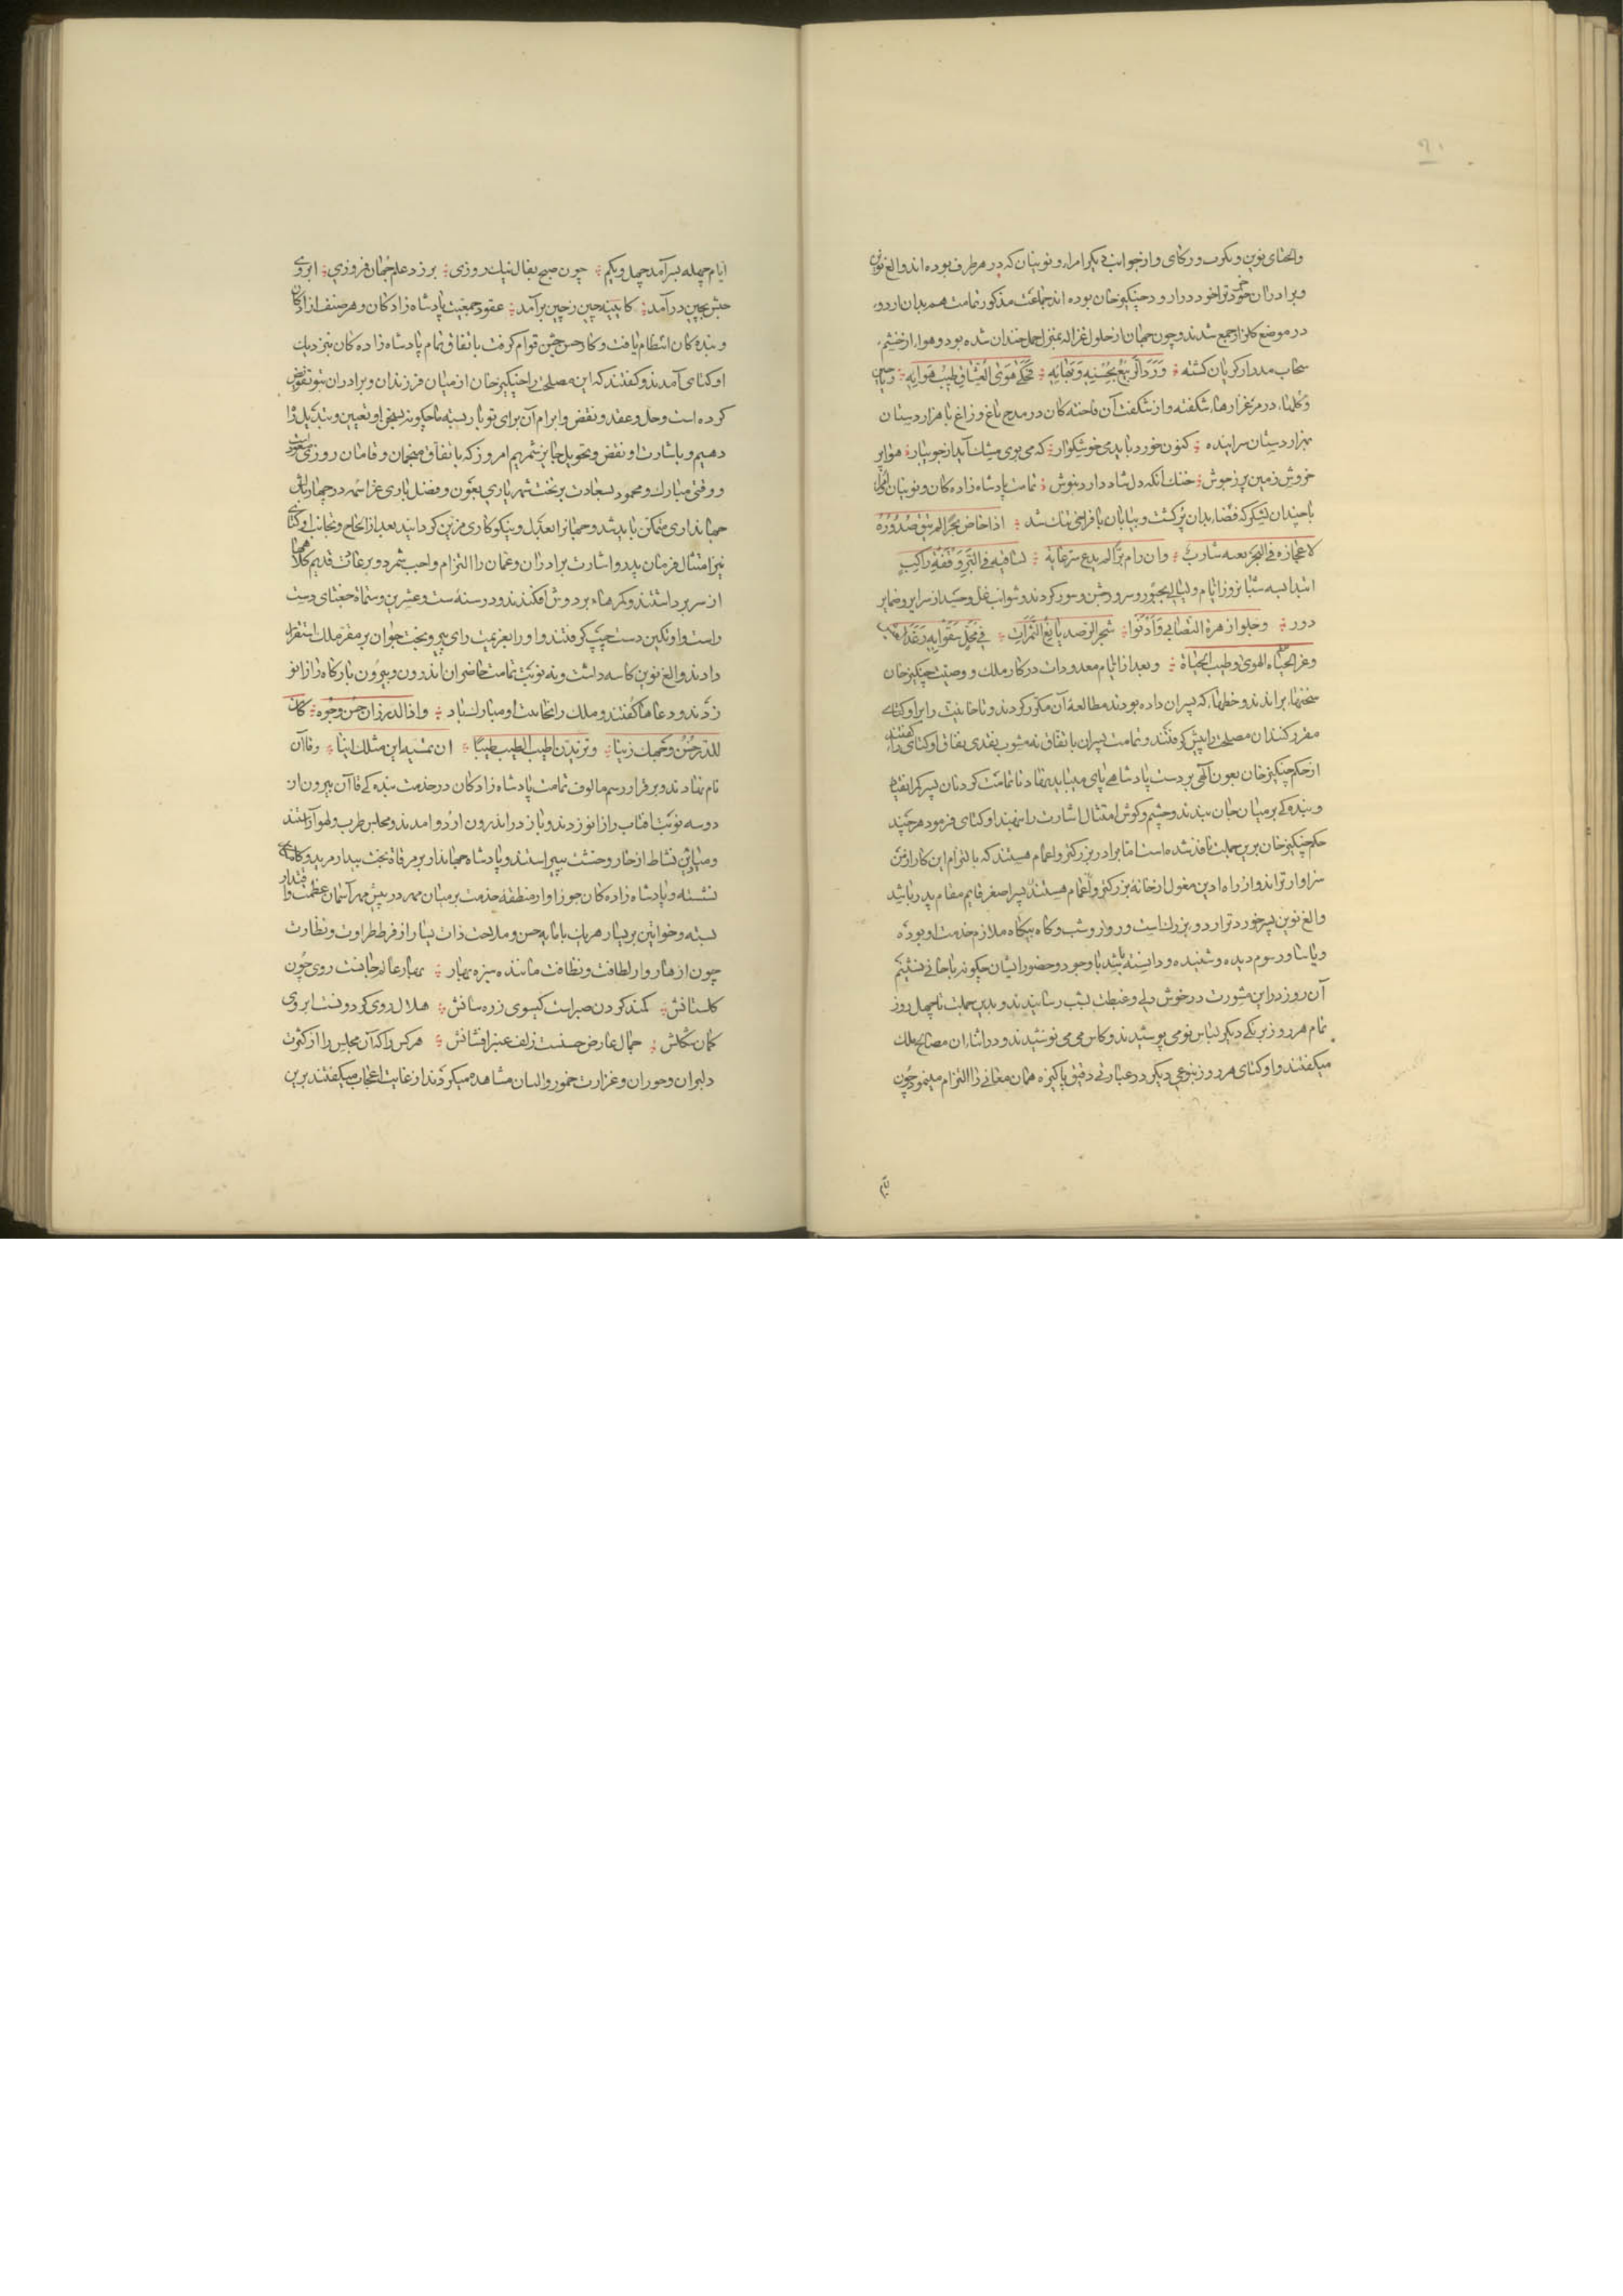 والجتای نوین و یکرب و رکای و از جوانب دیکر امراء و نوینان که در هر طرف بوده اند و الغ نوین
و برادران خود ترا خود در اردو چنکیز خان بوده اند جماعت مذکور تمامت هم بدان اردو
در موضع کلران جمع شدند و چون جهان از حلول غزاله بمنزل حمل خندان شده بود و هوا از چشم
سحاب مدرار کریان کشته ورد الربیع بحسنه وبهائه فحکی هوی العشاق طیب هوایه ریاحین
و کلها در مرغزارها شکفته و از شکفت آن فاخته کان در مدح باغ و زاغ با هزار دستان
بهزار دستان سراینده کنون خورد باید می خوشکوار که می بوی مشک آید از جویبار هوا پر
خروش زمین پر ز جوش خنک آنکه دل شاد دارد بنوش تمامت پادشاه زاده کان و نوینان و امرا
با چندان لشکر که فضاء بدان پر کشت و بیابان با فراخی تنک شد اذا خاض بحرا لم یبق صدوره
لاعجازه فی البحر بعبه شارب وان رام برا لم یدع سرعانه لساقیه فی البر وقفة راکب
ابتدا سه شبانروز ایام و لیالی بحبور و سرور جشن و سور کردند و شوائب غل و حسد از سرایر و ضمایر
دور وجلوا زهرة التصابی وادنوا شجر الرصد یانع الثمرات فی محل سقوا به رغد العیش
وعز الحیاة الهوی وطیب الحیاة و بعد از ایام معدودات در کار ملک و وصیت چنکیز خان
سخنها براندند و خطها که پسران داده بودند مطالعه آن مکرر کردند و تا خانیت را بر اوکتای
مقرر کنند آن مصلحت را پیش کرفتند و تمامت پسران باتفاق نه مشوب بقدی بفاق اوکتای را کفتند
از حکم چنکیز خان بعون الهی بر دست پادشاهی پای میباید نهاد تا تمامت کردنان پسر کمر انقیاد
و بنده کی بر میان جان ببندند و چشم و کوش امتثال اشارت را بنهند اوکتای فرمود هر چند
حکم چنکیز خان برین جملت نافذ شده است اما برادر بزرکتر و اعمام هستند که بالتزام این کار از من
سزاوارترند و از راه ادین مغول از خانه بزرکتر و اعمام هستند پسر اصغر قایم مقام پدر باشد
و الغ نوین پسر خوردتر اردو بزرک است و روز و شب و کاه بیکاه ملازم خدمت او بوده
و یاسا و رسوم دیده و شنیده و دانسته باشد با وجود و حضور ایشان چکونه بخانی نشینم
آن روز در این مشورت در خوش دلی و غبطت بشب رسانیدند و بدین جملت تا چهل روز
تمام هر روز برنکی دیکر لباس نو می پوشیدند و کاس می می نوشیدند و در اثناء آن مصالح ملک
میکفتند و اوکتای هر روز بنوعی دیکر در عبارتی دقیق پاکیزه همان معانی را التزام مینمود چون
ایام
ایام چهله بسر آمد چهل و یکم چون صبح بفال نیک روزی بر زد علم جهان فروزی ابروی
حبش بچین درآمد کایینه چین ز چین برآمد عقود جمعیت پادشاه زادکان و هر صنف از آزادکان
و بنده کان انتظام یافت و کار جشن قوام کرفت باتفاق تمام پادشاه زاده کان بنزدیک
اوکتای آمدند و کفتند که این مصلحت را چنکیز خان از میان فرزندان و برادران بتو تفویض
کرده است و حل و عقد و نقض و ابرام آن برای تو باز بسته ما چکونه بسخن او تعیین و تبدیل راه
دهیم و باشارت او نقض و تحویل جایز شمریم امروز که باتفاق منجمان و قامان روزی مسعود
و وقتی مبارک و محمود بسعادت بر تخت شهریاری بعون و فضل باری عز اسمه در چهار بالش
جهانداری متمکن باید شد و جهان را بعدل و نیکوکاری مزین کردانید بعد از الحاح و تجانب اوکتای
نیز امتثال فرمان پدر و اشارت برادران و عمان را التزام واجب شمرد و بر عادت قدیم کلاهها
از سر برداشتند و کمرها بر دوش افکندند و در سنه ست و عشرین و ستمائة جغتای دست
راست و اوتکین دست چپ کرفتند و او را بعزیمت رای پیر و بخت جوان بر مقر ملک استقرار
دادند و الغ نوین کاسه داشت و نه نوبت تمامت حاضران اندرون و بیرون بارکاه را زانو
زدند و دعاها کفتند و ملک را بخانیت او مبارک باد واذا الدر زان حسن وجوه کان
للدر حسن وجهک زینا وتزیدین اطیب الطیب طیبا ان تمسیه این مثلک اینا و قاآن
نام نهادند و بر قرار رسم مالوف تمامت پادشاه زادکان در خدمت بنده کی قاآن بیرون از
دو سه نوبت آفتاب را زانو زدند و باز در اندرون اردو آمدند و مجلس طرب و لهو آراستند
و میادین نشاط از خار وحشت بپیراستند و پادشاه جهاندار بر مرقاة بخت بیدار مرید و کامکار
نشسته و پادشاه زاده کان جوزاوار منطقه خدمت بر میان مهر در پیش مهر آسمان عظمت و اقتدار
بسته و خواتین بر یسار هر یک با مایه حسن و ملاحت ذات یسار از فرط طراوت و نظارت
چون ازهار و از لطافت و نظافت ماننده سبزه بهار بهار عالم جانست روی چون
کلستانش کمند کردن صبر است کیسوی زره سانش هلال روی کردونست ابروی
کمان شکلش جمال عارض حسنست زلف عنبر افشانش هر کس را که آن مجلس را از کثرت
دلبران و حوران و غزارت خمور و البان مشاهده میکردند از غایت اعجاب میکفتند برین